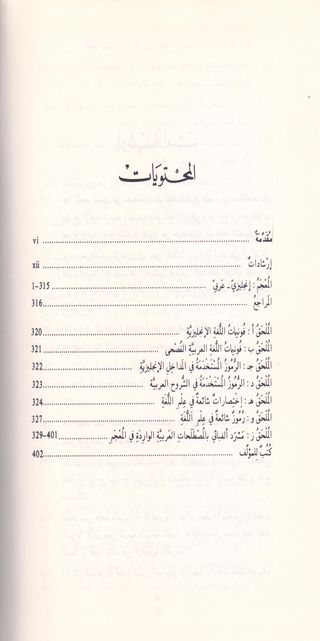 المحتويات
مُقدّمة ........ vi
إرشادات ........ xii
المُعْجَم : إنجليزيّ ـ عَرَبيّ ........ 1-315
المراجع ........ 316
المُلْحَق أ : فونيمات اللغة الإنجليزيّة ........ 320
المُلْحَق ب : فونيمات اللغة العربيّة الفُصْحى ........ 321
المُلْحَق جـ : الرُّموز المُسْتَخدَمة في المداخِل الإنجليزيّة ........ 322
المُلْحَق د : الرُّموز المُسْتَخدَمة في الشُّروح العربيّة ........ 323
المُلْحَق هـ : اخْتِصارات شائعة في عِلْم اللُّغة ........ 324
المُلْحَق و : رُموز شائعة في عِلْم اللُّغة ........ 327
المُلْحَق ز : مَسْرَد ألفبائي بالمُصْطَلَحات العَرَبيّة الوارِدة في المُعْجَم ........ 329-401
كُتُب للمؤلّف ........ 402